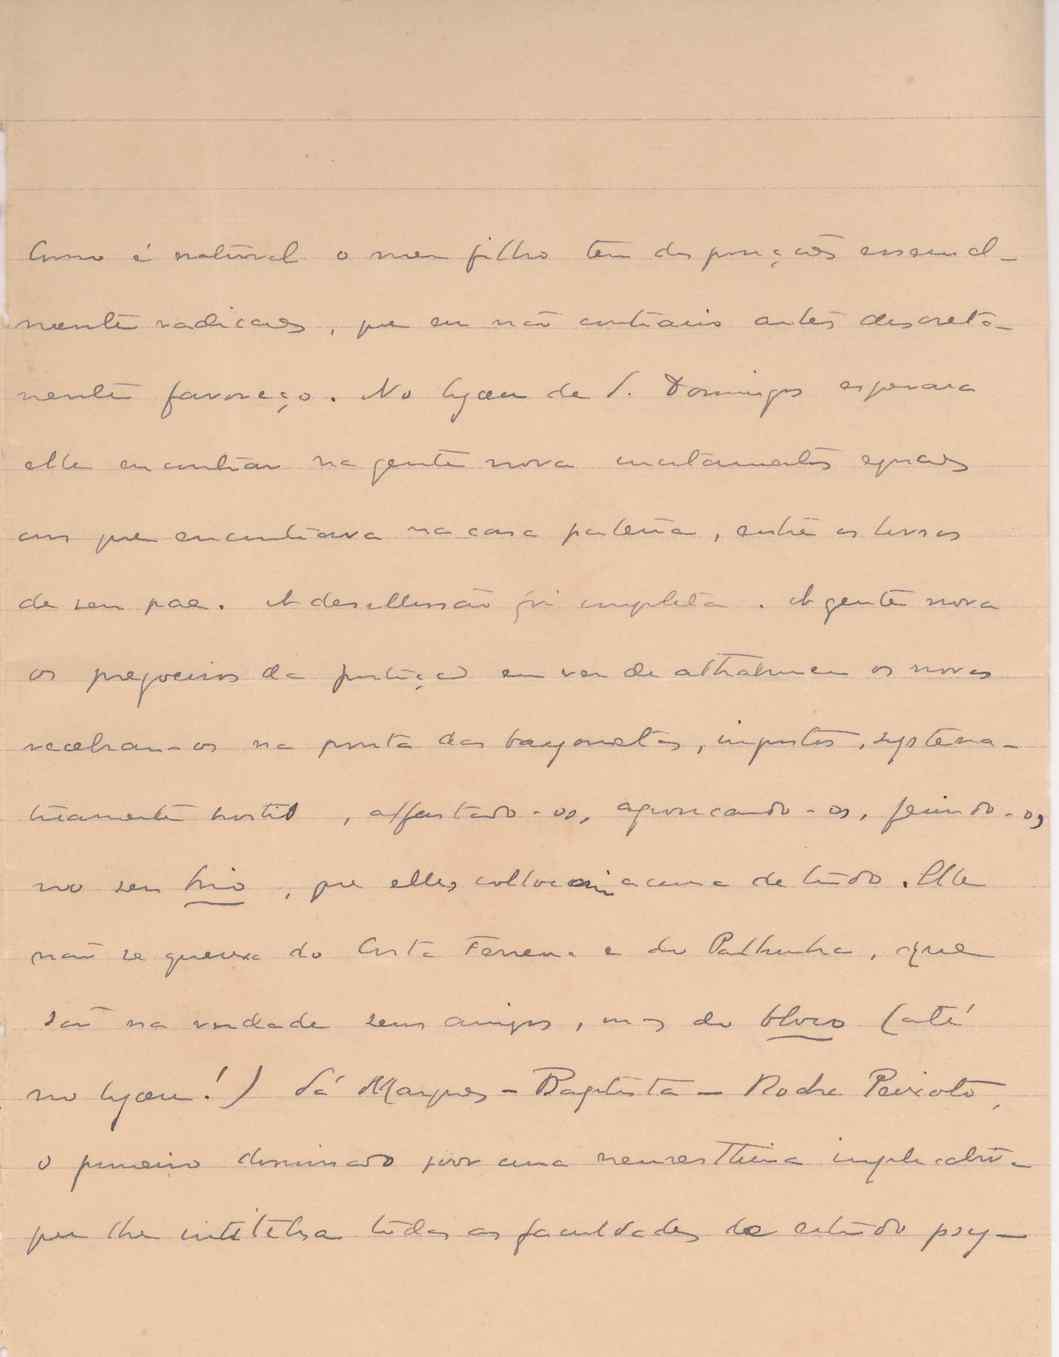 Como é natural o meu filho tem disposições essencial-
mente radicaes, que eu não contrario antes discreta-
mente favoreço. No lyceu de S. Domingos esperava
elle encontrar na gente nova incitamentos eguaes
aos que encontrava na casa paterna, entre os livros
de seu pae. A desillusão foi completa. A gente nova
os pregoeiros da justiça em vez de os novos
recebram-os na ponta das bayonetas, injustos, systema-
ticamente hostis, affastado-os, agoniando-os, ferindo-os,
no seu brio, que elles collocam acima de tudo. Elle
não se queixa do Costa Ferreira e do Palhinha, que
são na verdade seus amigos, mas do bloco (até
no lyceu!) Sá Marques - Baptista - Rocha Peixoto,
o primeiro dominado por uma neuresthenia implacavel
que lhe inutilisa todas as faculdades de estudo psy-